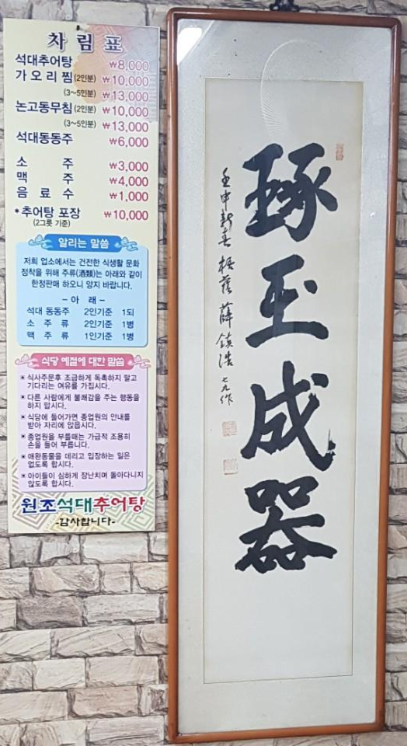 차림표
석대추어탕 ₩8,000
가오리찜(2인분) ₩10,000
(3~5인분) ₩13,000
논고동무침(2인분) ₩10,000
(3~5인분) ₩13,000
석대동동주 ₩6,000
소주 ₩3,000
맥주 ₩4,000
음료수 ₩1,000
•추어탕 포장 ₩10,000
(2그릇 기준)
알리는 말씀
저희 업소에서는 건전한 식생활 문화
정착을 위해 주류(酒類)는 아래와 같이
한정판매 하오니 양지 바랍니다.
-아래-
석대 동동주 2인기준 1되
소주류 2인기준 1병
맥주류 1인기준 1병
식당 예절에 대한 말씀
* 식사주문후 조급하게 독촉하지 말고
기다리는 여유를 가집시다.
* 다른 사람에게 불쾌감을 주는 행동을
하지 맙시다.
* 식당에 들어가면 종업원의 안내를
받아 자리에 앉읍시다.
* 종업원을 부를때는 가급적 조용히
손을 들어 부릅니다.
* 애완동물을 데리고 입장하는 일은
없도록 합시다.
* 아이들이 심하게 장난치며 돌아다니지
않도록 합시다.
원조석대추어탕
-감사합니다-
琢玉成器
壬申新春 薛鎮浩 七九作